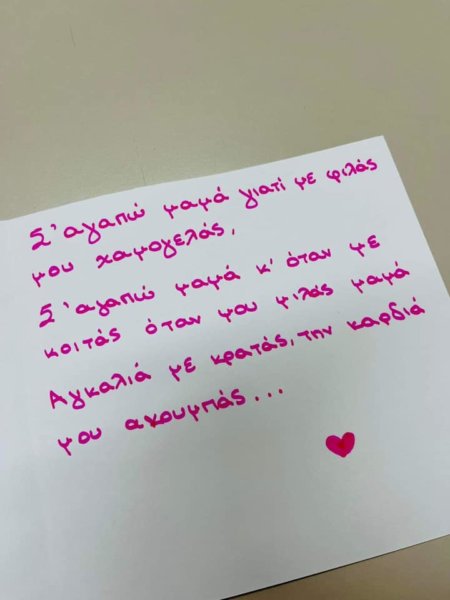 Σ'αγαπώ μαμά γιατί με φιλάς
μου χαμογελάς,
Σ'αγαπώ μαμά κ' όταν με
κοιτάς όταν μου μιλάς μαμά
Αγκαλιά με κρατάς, την καρδιά
μου ακουμπάς...